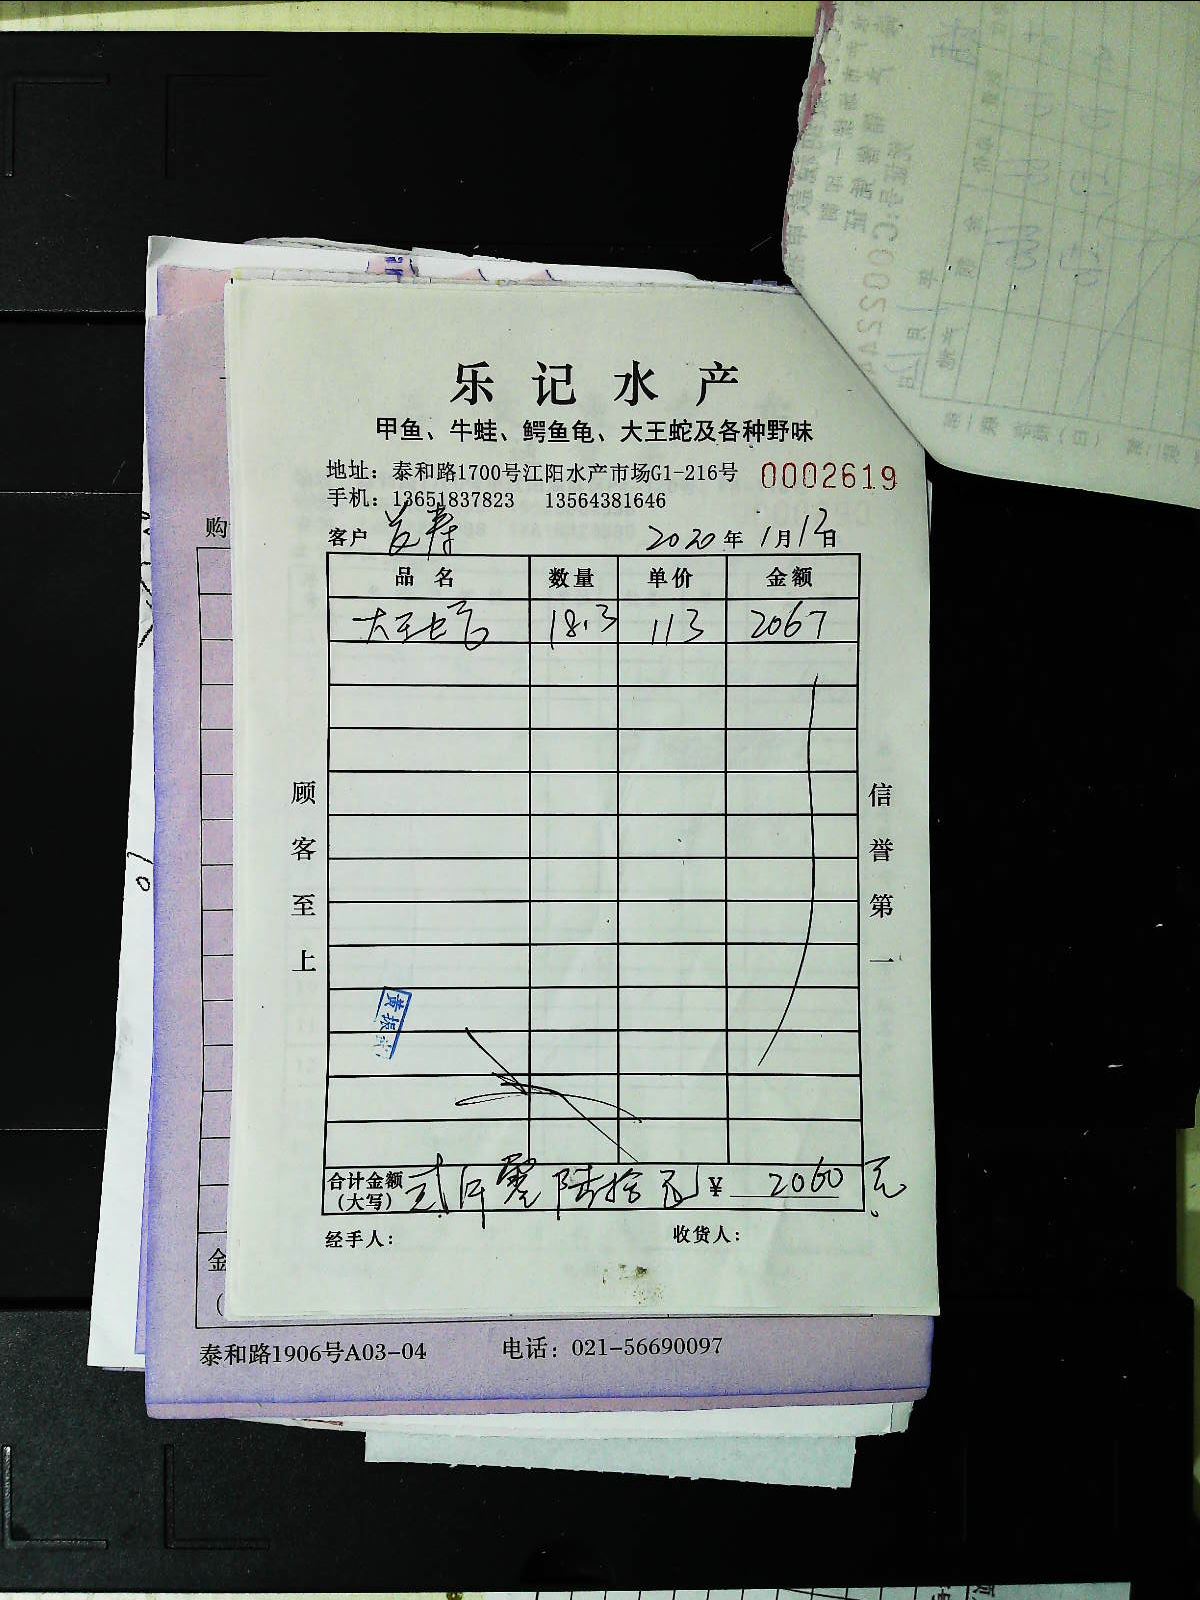 乐记水产
甲鱼、牛蛙、鳄鱼龟、大王蛇及各种野味
地址：泰和路1700号江阳水产市场G1-216号 0002619
手机：13651837823 13564381646
客户 2020年1月12日
品名 数量 单价 金额
大王蛇 18.3 113 2067
顾客至上
信誉第一
合计金额（大写） 贰仟零陆拾元 ¥ 2060元
经手人： 收货人：
购
金
泰和路1906号A03-04 电话：021-56690097